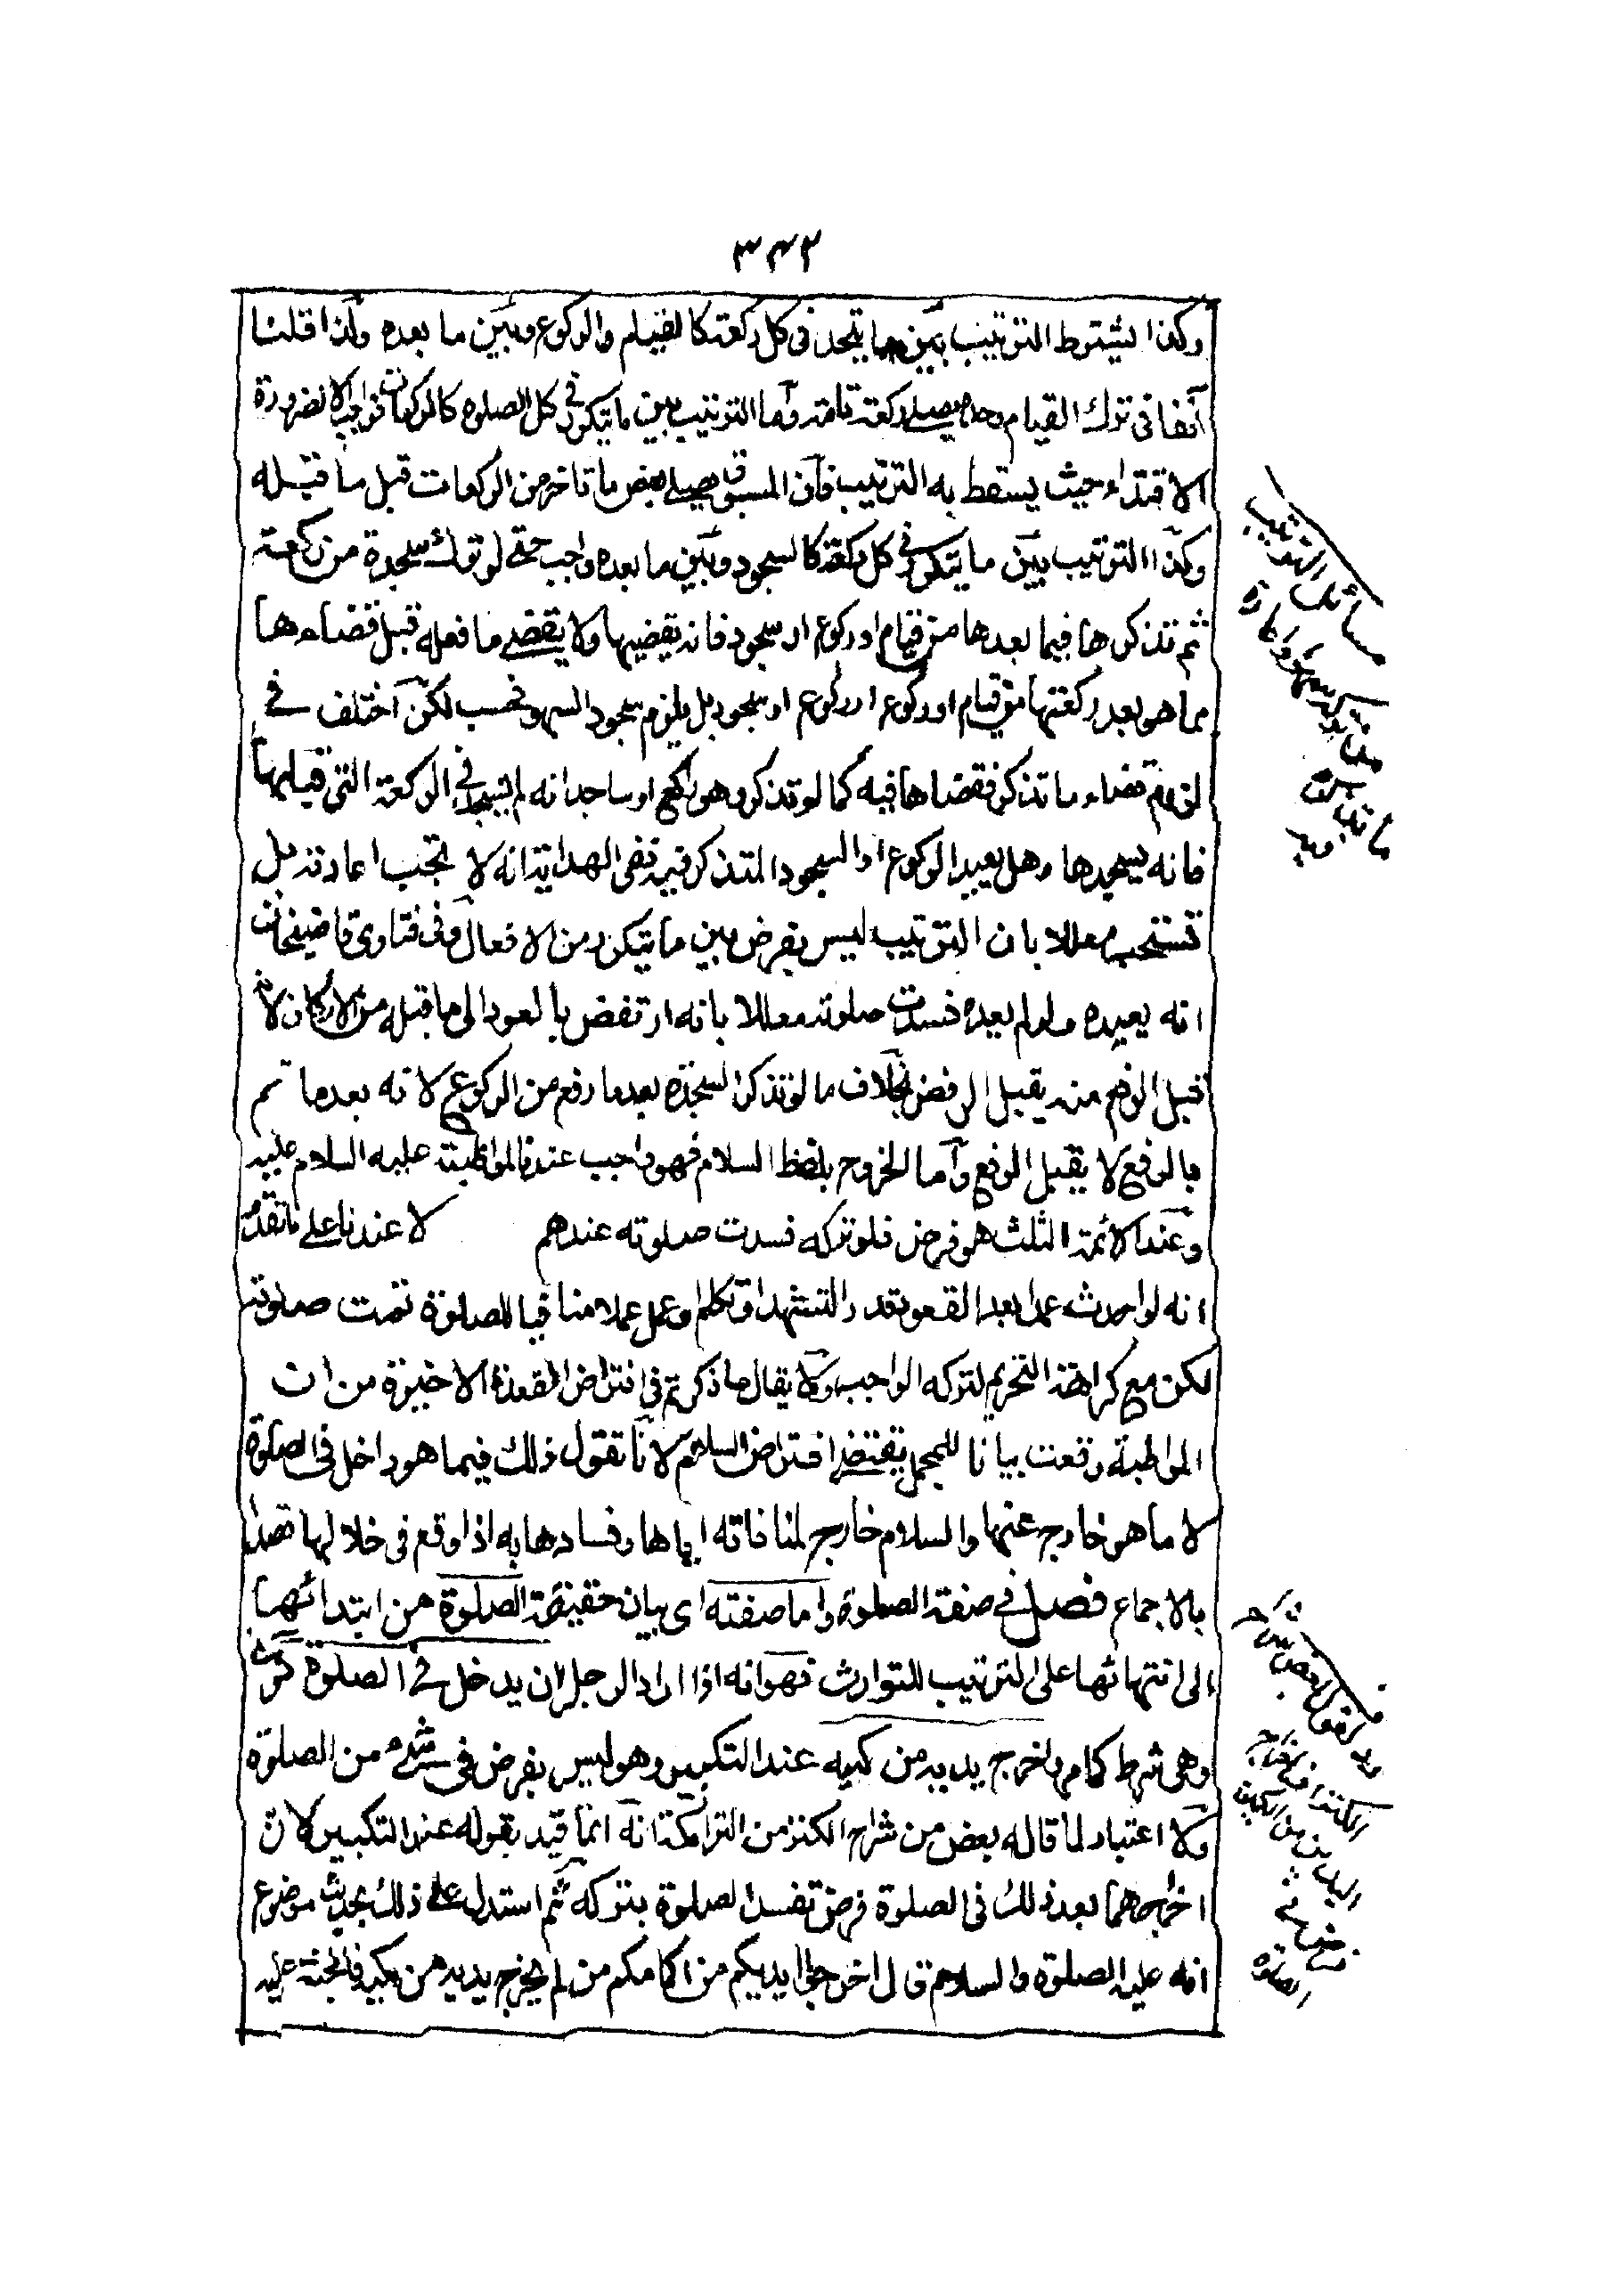 ٣٤٢
وكذا يشترط الترتيب بين ما يتحد في كل ركعة كالقيام والركوع وبين ما بعده ولذا قلنا
آنفا في ترك القيام وحده يصلي ركعة تامة وأما الترتيب بين ما يتكرر في كل الصلوة كالركعات فواجب الا لضرورة
الاقتداء حيث يسقط به الترتيب فان المسبوق يصلي بعض ما تاخر من الركعات قبل ما قبله
وكذا الترتيب بين ما يتكرر في كل ركعة كالسجود وبين ما بعده واجب حتى لو ترك سجدة من ركعة
ثم تذكرها فيما بعدها من قيام او ركوع او سجود فانه يقضيها ولا يقضي ما فعله قبل قضاءها
مما هو بعد ركعتها من قيام او ركوع او سجود بل يلزم سجود السهو فحسب لكن اختلف في
لزوم قضاء ما تذكر فقضاها فيه كما لو تذكر وهو راكع او ساجد انه لم يسجد في الركعة التي قبلها
فانه يسجدها وهل يعيد الركوع او السجود المتذكر فيه ففي الهداية انه لا تجب اعادته بل
تستحب معللا بان الترتيب ليس بفرض بين ما يتكرر من الافعال وفي فتاوى قاضيخان
انه يعيده ولو لم يعده فسدت صلوته معللا بانه ارتفض بالعود الى ما قبله من الاركان لانه
قبل الرفع منه يقبل الرفض بخلاف ما لو تذكر السجدة بعد ما رفع من الركوع لانه بعد ما تم
بالرفع لا يقبل الرفع وأما الخروج بلفظ السلام فهو واجب عندنا لمواظبته عليه السلام عليه
وعند الائمة الثلث هو فرض فلو تركه فسدت صلوته عندهم لا عندنا على ما تقدم
انه لو احدث عمدا بعد القعود قدر التشهد او تكلم او عمل عملا منافيا للصلوة تمت صلوته
لكن مع كراهة التحريم لتركه الواجب ولا يقال ما ذكرتم في افتراض القعدة الاخيرة من ان
المواظبة وقعت بيانا للمجمل يقتضي افتراض السلام لانا نقول ذلك فيما هو داخل في الصلوة
لا ما هو خارج عنها والسلام خارج لمنافاته اياها وفسادها به اذا وقع في خلالها قصدا
بالاجماع فصل في صفة الصلوة واما صفته اى بيان حقيقة الصلوة من ابتدائها
الى انتهائها على الترتيب للتوارث فهو انه اذا اراد الرجل ان يدخل في الصلوة كبر
وهي شرط كما مر واخرج يديه من كميه عند التكبير وهو ليس بفرض في شيء من الصلوة
ولا اعتبار لما قاله بعض من شراح الكنز من التراكمة انه انما قيد بقوله عند التكبير لان
اخراجهما بعد ذلك في الصلوة فرض تفسد الصلوة بتركه ثم استدل على ذلك بحديث موضوع
انه عليه الصلوة والسلام قال اخرجوا ايديكم من اكمامكم من لم يخرج يديه من كميه فالجنة عليه